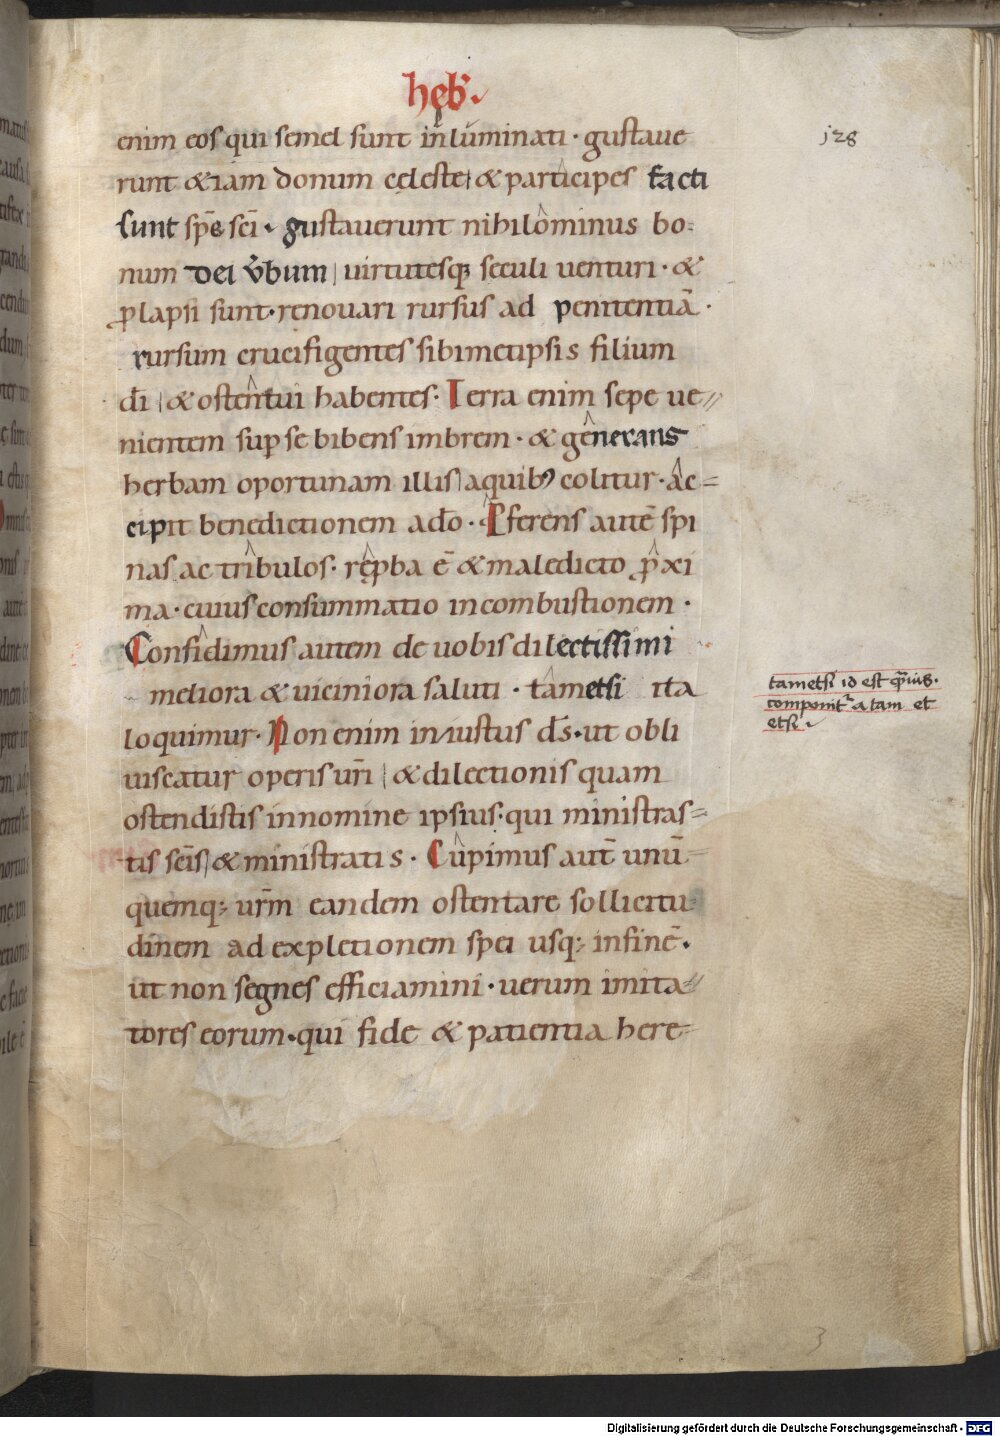 hęb᾽.
128
enim eos qui semel sunt inluminati · gustaue
runt & iam donum cęleste & participes facti
sunt sp̄s sc̄i · gustauerunt nihilominus bo-
num dei v̄bum uirtutesq; seculi uenturi · &
ꝓlapsi sunt · renouari rursus ad penitentiā ·
rursum crucifigentes sibimetipsis filium
dī & ostentui habentes · Terra enim sepe ue-
nientem sup se bibens imbrem · & generans
herbam oportunam illis a quib; colitur · Ac-
cipit benedictionem a dō · Pferens autē spi
nas ac tribulos · reꝓba ē & maledicto ꝓxi
ma · cuius consummatio in combustionem ·
Confidimus autem de uobis dilectissimi
meliora & uiciniora saluti · tametsi ita
loquimur · Non enim iniustus ds̄ · ut obli
uiscatur operis ur̄i & dilectionis quam
ostendistis in nomine ipsius · qui ministras-
tis sc̄is & ministratis · Cupimus aut̄ unū-
quemq; ur̄m eandem ostentare sollicitu-
dinem ad expletionem spei usq; in finē ·
ut non segnes efficiamini · uerum imita-
tores eorum · qui fide & patientia here-
tametsi id est qͣuis ·
componitᷣ a tam et
etsi
3
Digitalisierung gefördert durch die Deutsche Forschungsgemeinschaft - DFG